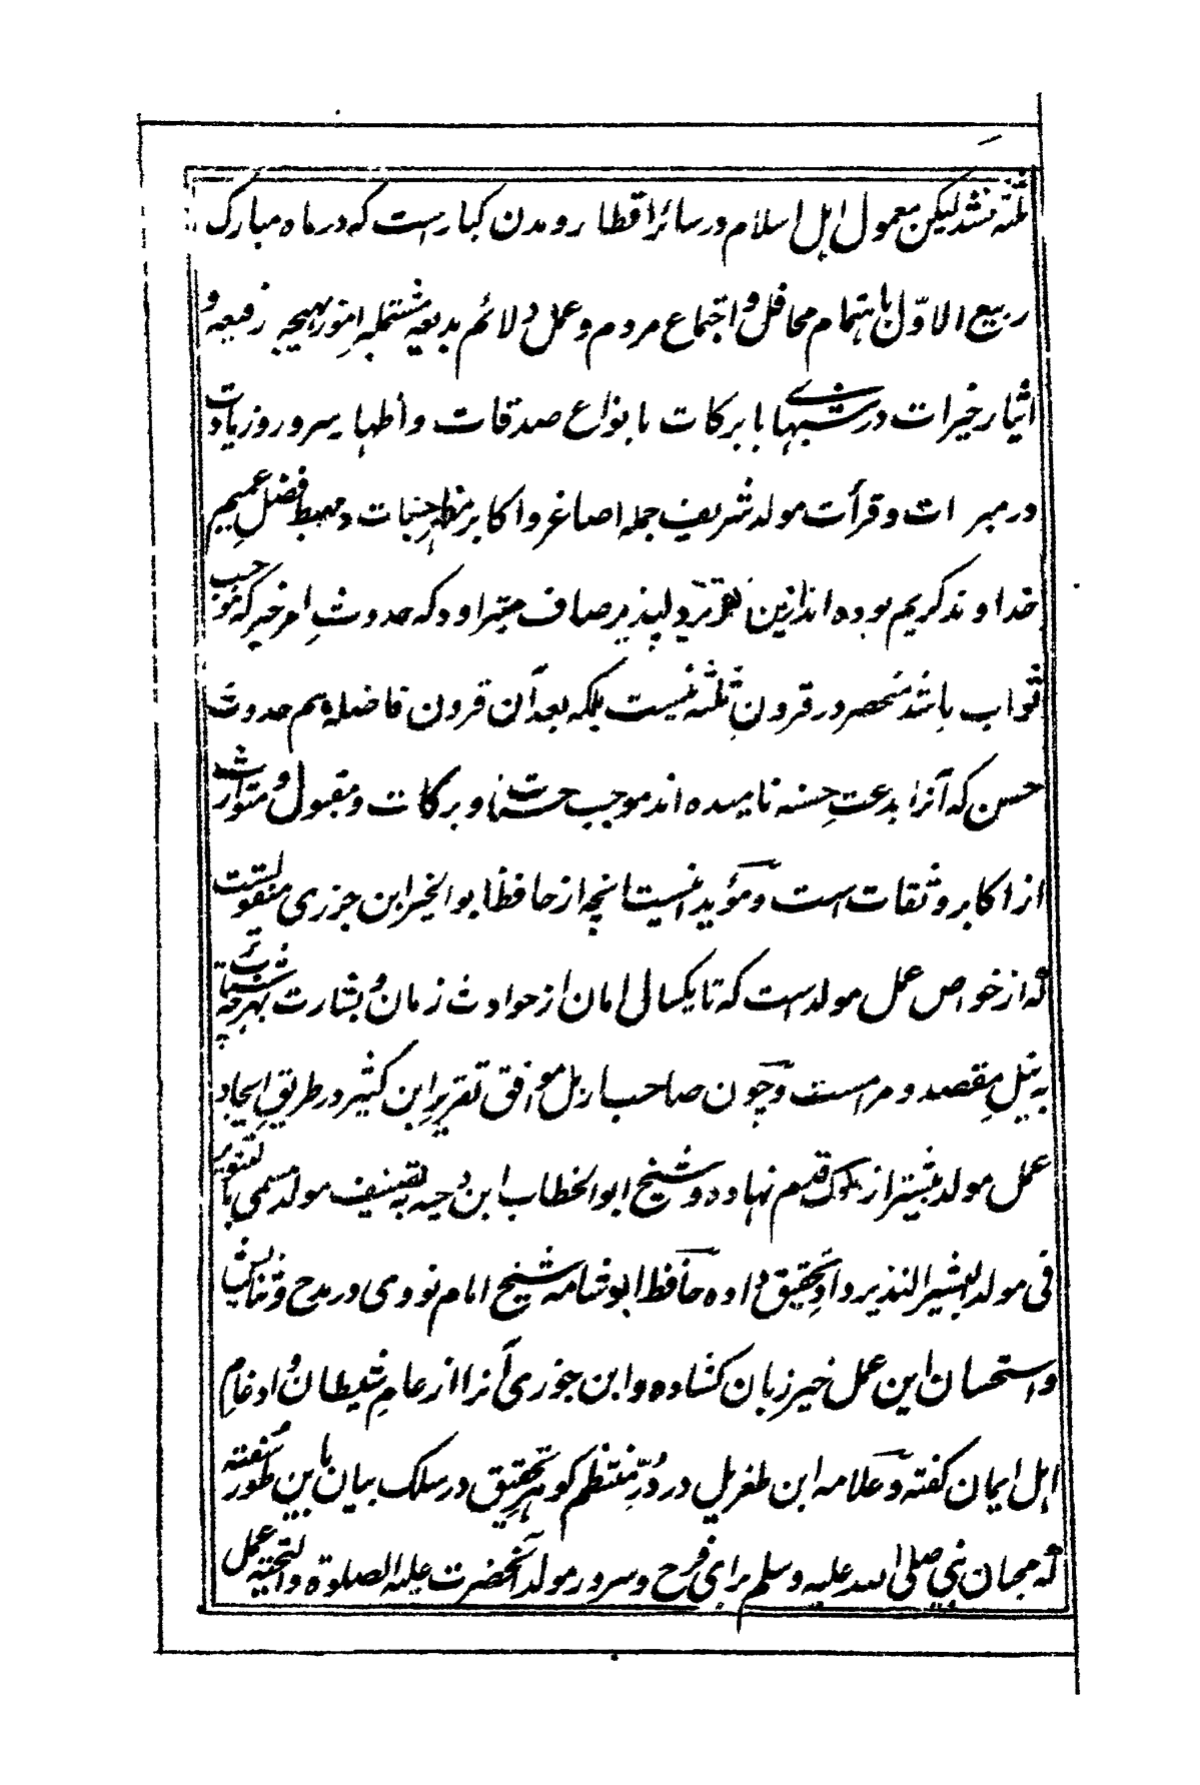 ثلثه نشد لیکن معمول اہل اسلام در سائر اقطار و مدن کبار است که در ماه مبارک
ربیع الاوّل باہتمام محافل و اجتماع مردم و عمل ولائم بدیعه مشتمله امور بهیجه رفیعه و
ایثار خیرات در شبهای با برکات بانواع صدقات و اظهار سرور و زیادت
در مبرات و قرأت مولد شریف جمله اصاغر و اکابر مظاہر جنبات و مهبط فضلِ عمیم
خداوند کریم بوده اند ازین تقریر دلپذیر صاف میتراود که حدوثِ امر خیر که موجب
ثواب باشد منحصر در قرونِ ثلثه نیست بلکه بعد آن قرون فاضله ہم حدوث
حسن که آنرا بدعتِ حسنه نامیده اند موجب حسنات و برکات و مقبول و متوارث
از اکابر و ثقات است و مؤید اینست انچه از حافظ ابو الخیر ابن جزری منقولست
که از خواص عمل مولد است که تا یکسال امان از حوادث زمان و بشارت بهر چه شتابتر
به نیلِ مقصد و مرامست و چون صاحب اربل موافق تقریرِ ابن کثیر در طریقِ ایجاد
عمل مولد بیشتر از ملوک قدم نهاوده و شیخ ابو الخطاب ابن دحیه به تصنیف مولد مسمی بالتنویر
فی مولد البشیر النذیر دادِ تحقیق داده حافظ ابو شامه شیخ امام نووی در مدح و ثنایش
و استحسان این عمل خیر زبان کشاده و ابن جوزی آنرا ارغامِ شیطان و ادغامِ
اہل ایمان گفته و علامه ابن طغربل در دُرِّ منتظم گوہر تحقیق در سلک بیان باین طور سفته
که محبان نبی صلی الله علیه وسلم برای فرح و سرور مولد آنحضرت علیه الصلوة والتحیة عمل